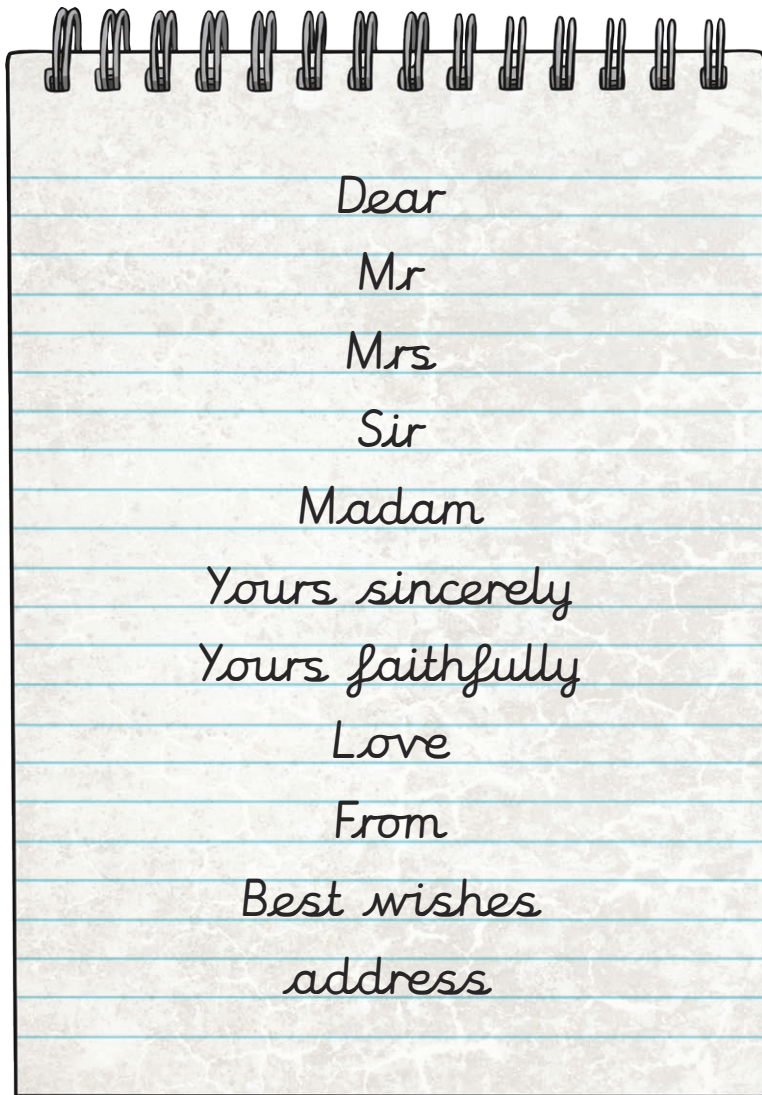 Dear
Mr
Mrs
Sir
Madam
Yours sincerely
Yours faithfully
Love
From
Best wishes
address